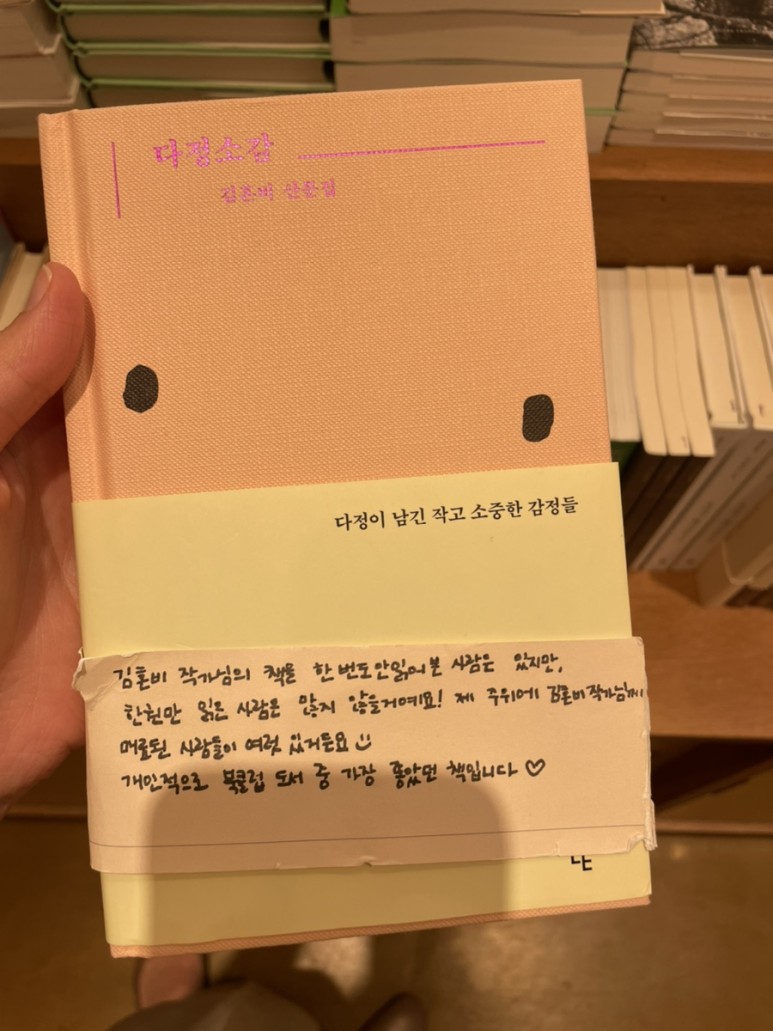 다정소감
김혼비 산문집
다정이 남긴 작고 소중한 감정들
김혼비 작가님의 책을 한 번도 안 읽어 본 사람은 있지만,
한 권만 읽은 사람은 많지 않을거예요! 제 주위에 김혼비 작가님께
매료된 사람들이 여럿 있거든요
개인적으로 북클럽 도서 중 가장 좋았던 책입니다 ♡